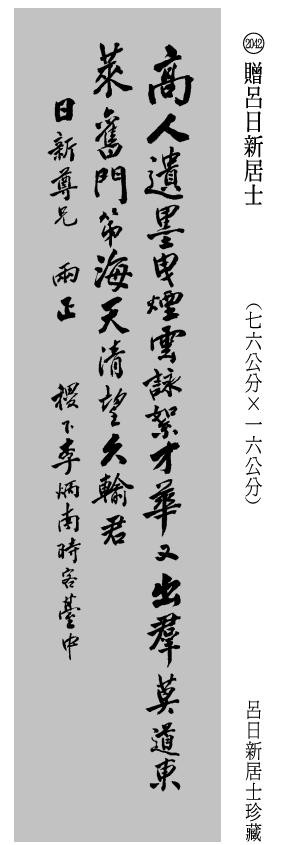 2042 贈呂日新居士
(七六公分×一六公分)
呂日新居士珍藏
高人遺墨曳煙雲詠絮才華又出群莫道東
萊舊門第海天清望久輸君
日新尊兄 兩正
稷下李炳南時客臺中